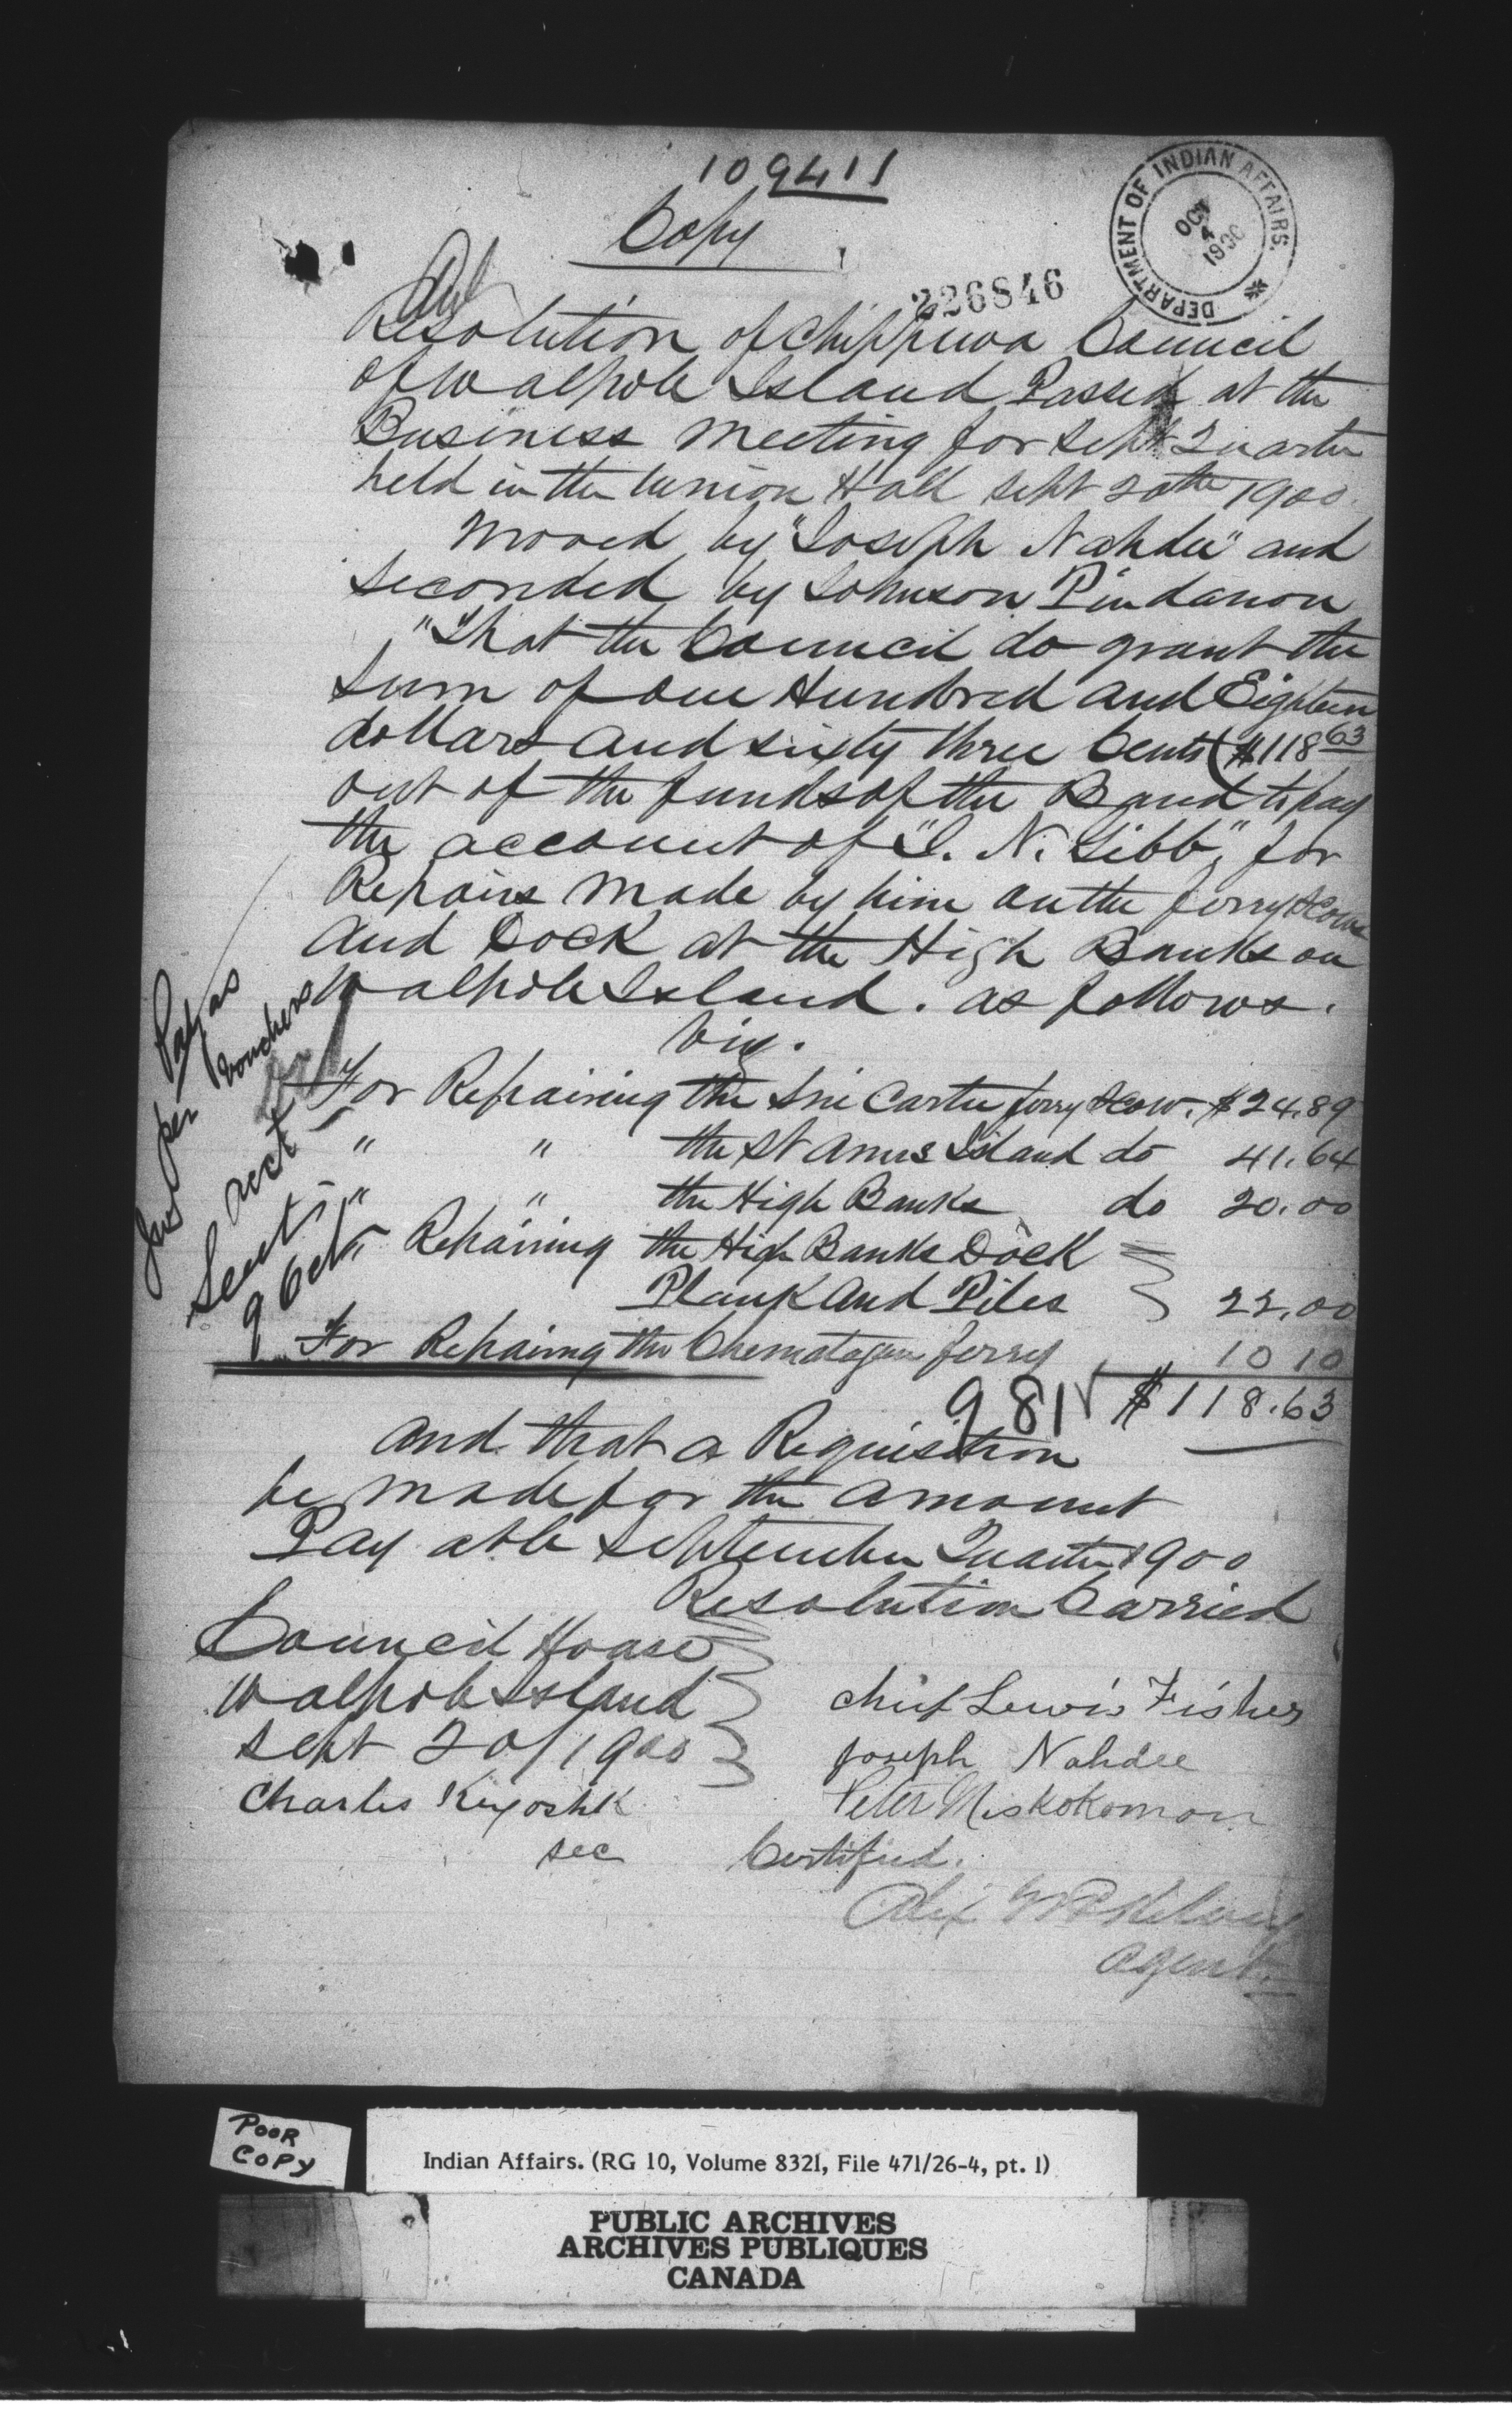 109411
Copy
DEPARTMENT OF INDIAN AFFAIRS.
OCT
4
1900
226846
Resolution of Chippewa Council
of Walpole Island Passed at the
Business meeting for Sept Quarter
held in the Union Hall Sept 20th 1900.
Moved by "Joseph Nahdee" and
seconded by Johnson Pindanon
"That the Council do grant the
Sum of One Hundred and Eighteen
dollars and sixty three Cents ($118 63
out of the funds of the Band to pay
the account of "J. N. Gibb", for
Repairs made by him on the ferry Scows
and Dock at the High Banks on
Walpole Island. as follows.
Viz.
For Repairing the Sni Cartee ferry Scow. $24.89
" " the St Annes Island do 41.64
" " the High Banks do 20.00
" Repairing the High Banks Dock
Plank and Piles 22.00
For Repairing the Chematogan ferry 10 10
$118.63
981
Pay as
per vouchers
acct
9 Oct
and that a Requisition
be made for the amount
Pay able September Quarter 1900
Resolution Carried
Council House
Walpole Island
Sept 20/1900
Charles Kiyoshk
sec
Chief Lewis Fisher
Joseph Nahdee
Peter Miskokomon
Certified.
Alex McKelvey
Agent.
POOR
COPY
Indian Affairs. (RG 10, Volume 8321, File 471/26-4, pt. 1)
PUBLIC ARCHIVES
ARCHIVES PUBLIQUES
CANADA